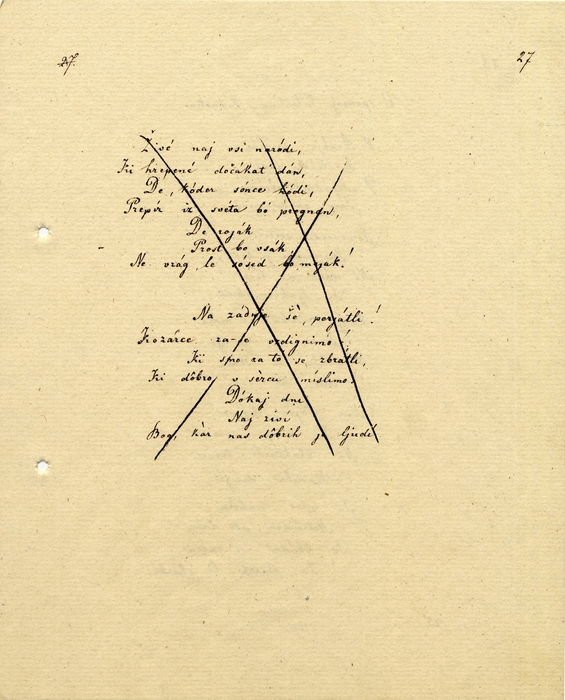 27.
27
Živé naj vsi naródi,
Ki hrepené dočàkat' dán,
De, kóder sónce hódi,
Prepír iz svéta bó pregnán,
De roják
Prost bo vsák,
Ne vrág, le sósed bo meják!
Na zádnje šè, perjátli!
Kozárce za-se vzdignimo!
Ki smo za tó se zbrátli,
Ki dôbro v sèrcu míslimo.
Dókaj dni
Naj živí
Bog, kàr nas dôbrih je ljudí